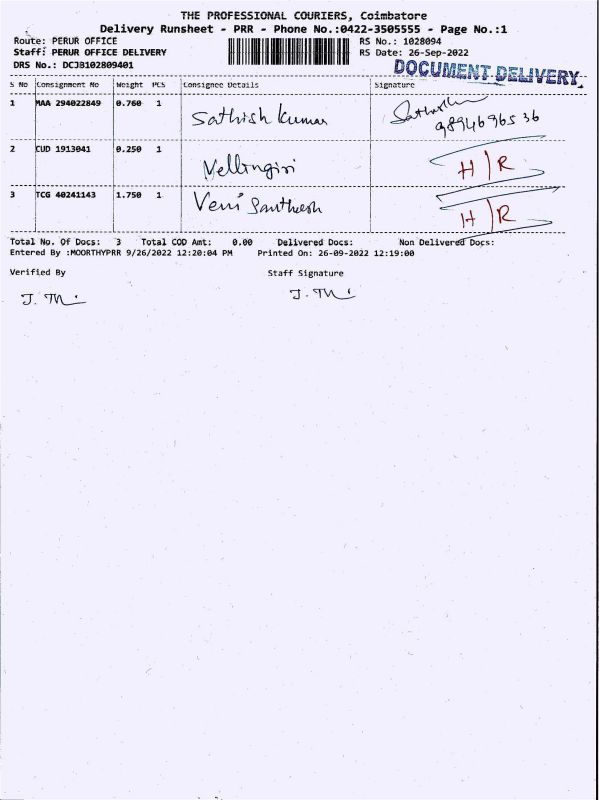 THE PROFESSIONAL COURIERS, Coimbatore
Delivery Runsheet - PRR - Phone No.:0422-3505555 - Page No.:1
Route: PERUR OFFICE RS No.: 1028094
Staff: PERUR OFFICE DELIVERY RS Date: 26-Sep-2022
DRS No.: DCJB102809401 DOCUMENT DELIVERY
S No Consignment No Weight PCS Consignee Details Signature
1 MAA 294022849 0.760 1 Sathish Kumar
9894696536
2 CUD 1913041 0.250 1 Vellingiri H/R
3 TCG 40241143 1.750 1 Veni Santhosh H/R
Total No. Of Docs: 3 Total COD Amt: 0.00 Delivered Docs: Non Delivered Docs:
Entered By :MOORTHYPRR 9/26/2022 12:20:04 PM Printed On: 26-09-2022 12:19:00
Verified By Staff Signature